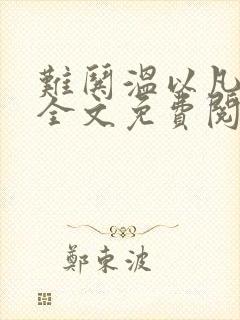 難鬨溫以凡
全文免費閱
鄭東波